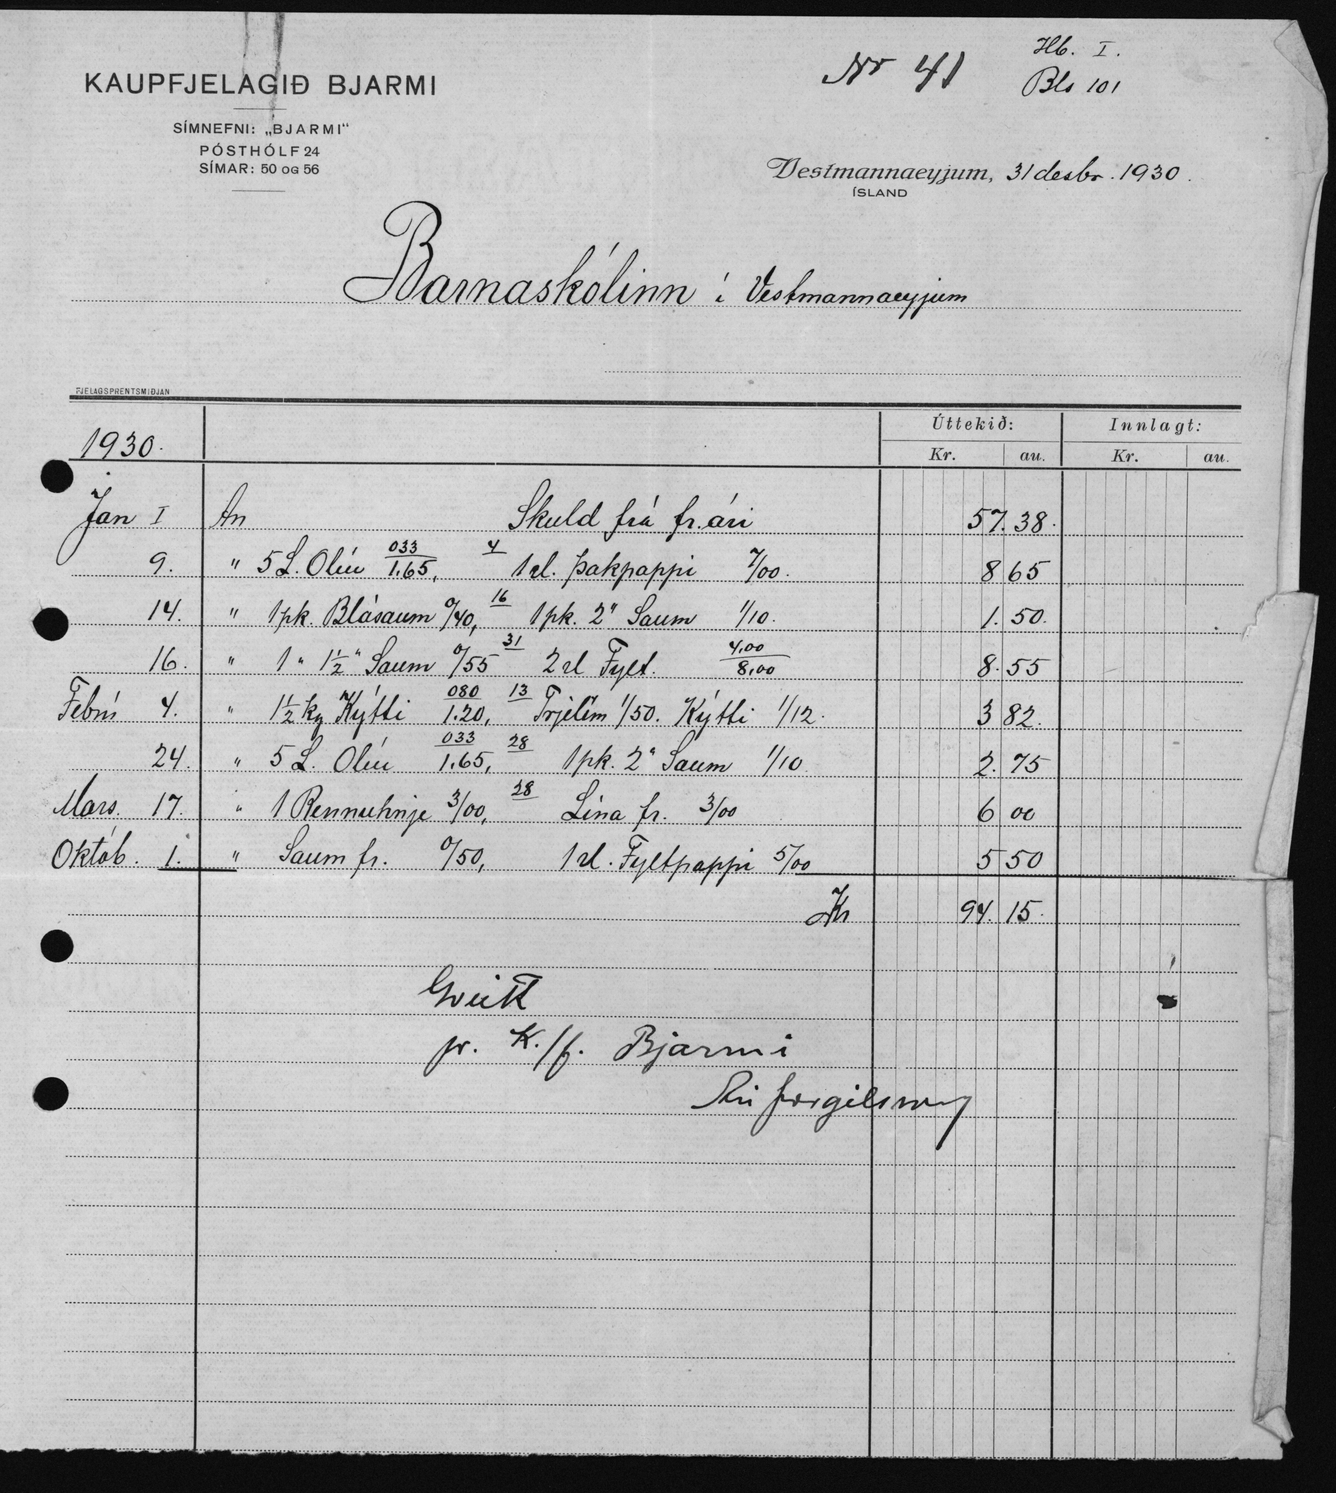 Nr 41
Hb. I.
Bls 101
KAUPFJELAGIÐ BJARMI
SÍMNEFNI: „BJARMI"
PÓSTHÓLF 24
SÍMAR: 50 OG 56
Vestmannaeyjum, 31 desbr. 1930.
ÍSLAND
Barnaskólinn í Vestmannaeyjum
FJELAGSPRENTSMIÐJAN
Úttekið: Innlagt:
1930. Kr. au. Kr. au.
Jan I An Skuld frá fr. ári 57.38.
9. " 5 L. Olíu 033/1.65, 4 1 rl. Þakpappi 7/00. 8 65
14. " 1 pk. Blásaum 0/40, 16 1 pk. 2" Saum 1/10. 1. 50.
16. " 1 " 1½" Saum 0/55 31 2 rl Fylt. 4,00/8,00 8.55
Febrú 4. " 1½ kg Kýtti 080/1.20, 13 Trjelím 1/50. Kýtti 1/12. 3 82.
24. " 5 L. Olíu 033/1.65, 28 1 pk. 2" Saum 1/10. 2. 75
Mars. 17. " 1 3/00, 28 Lína fr. 3/00 6 00
Októb. 1. " Saum fr. 0/50, 1 rl. Fyltpappi 5/00 5 50
Kr 94.15.
pr. K./f. Bjarmi